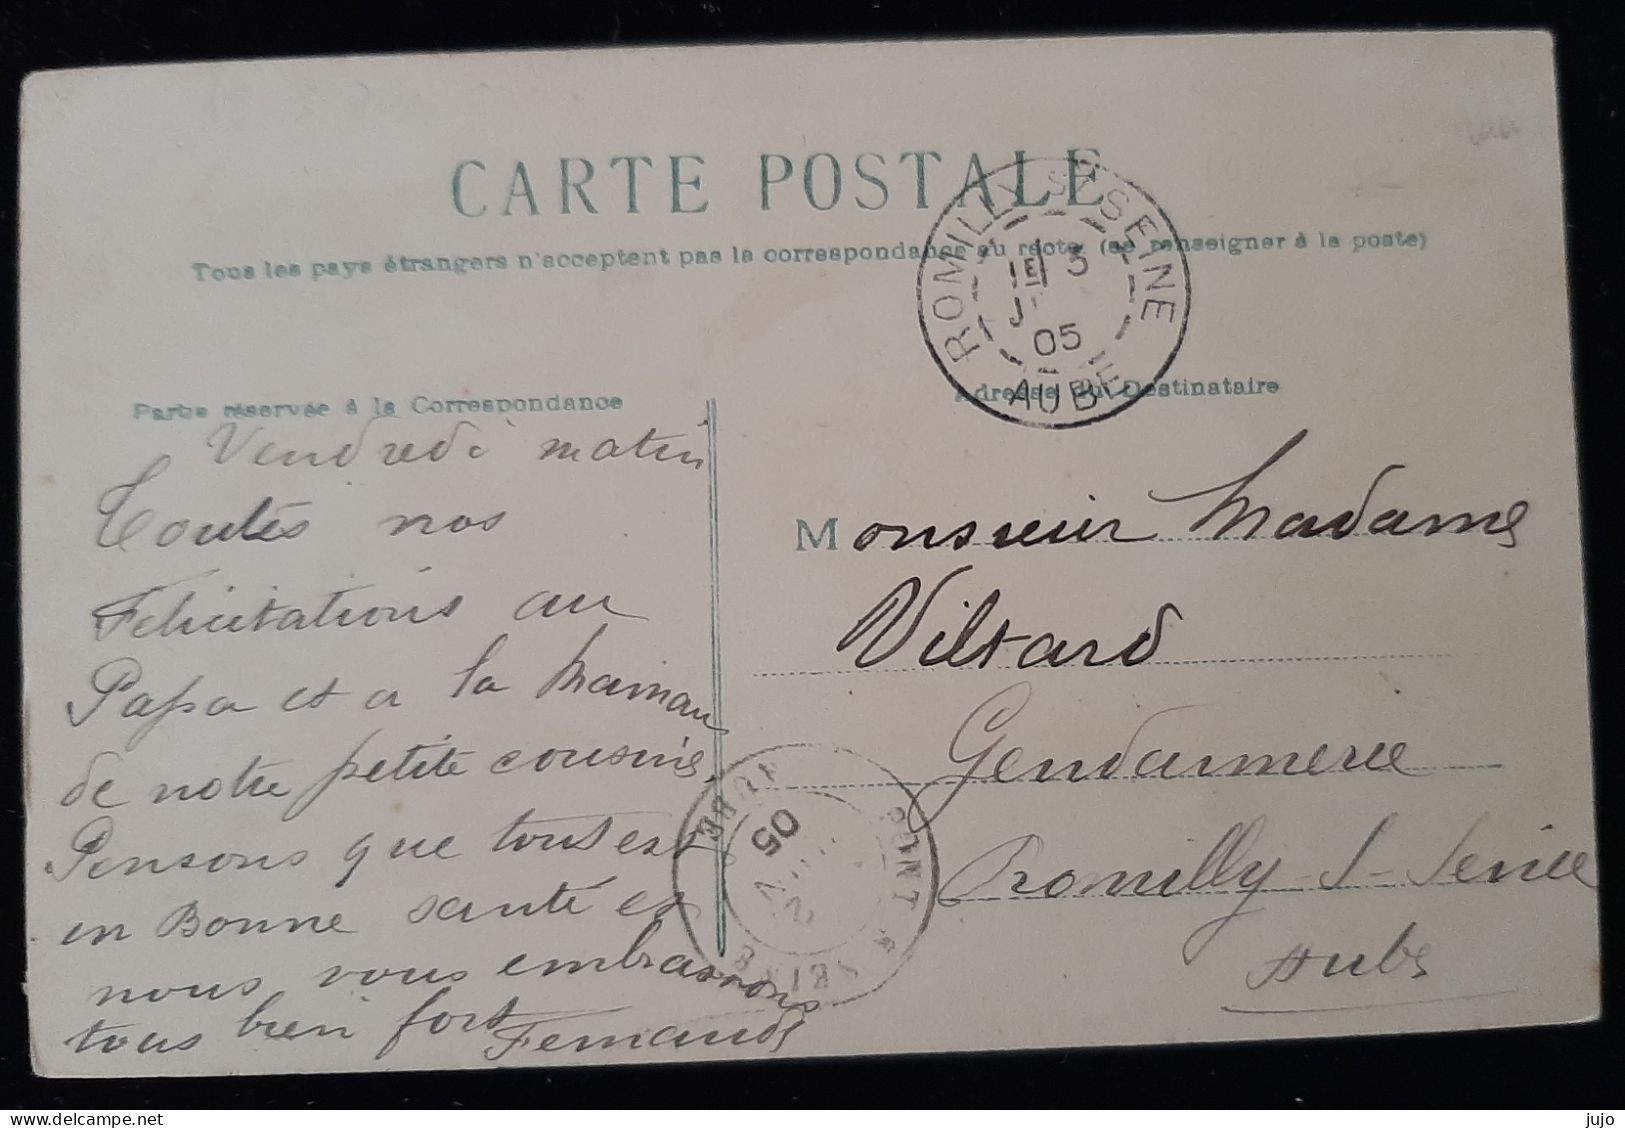 CARTE POSTALE
Tous les pays étrangers n'acceptent pas la correspondance au recto (se renseigner à la poste)
ROMILLY S. SEINE
3
05
AUBE
Partie réservée à la Correspondance
Adresse du Destinataire
Vendredi matin
Toutes nos
Felicitations au
Papa et a la Maman
de notre petite cousine.
Pensons que tous est
en Bonne santé et
nous vous embrassons
tous bien fort
Fernande
Monsieur Madame
Viltard
Gendarmerie
Romilly S-Seine
Aube
PONT
AUBE
05
www.delcampe.net
jujo